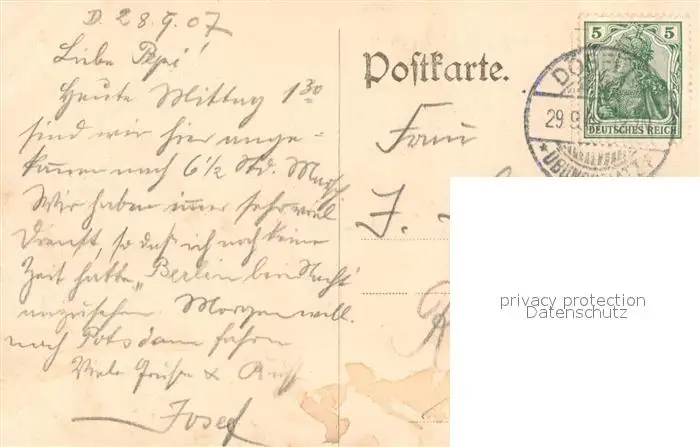 D. 28.9.07
Liebe Pepi!
Heute Mittag 1 30
sind wir hier ange-
kommen nach 6 1/2 Std. Marsch
Wir haben immer sehr viel
Dienst, so daß ich noch keine
Zeit hatte „Berlin bei Nacht"
anzusehen. Morgen will
nach Potsdam fahren
Viele Grüße & Kuß
Josef
Postkarte.
Frau
J.
5 5
DEUTSCHES REICH
29.9.
privacy protection
Datenschutz